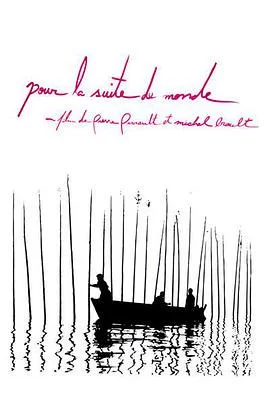 pour la suite du monde
un film de pierre perrault et michel brault